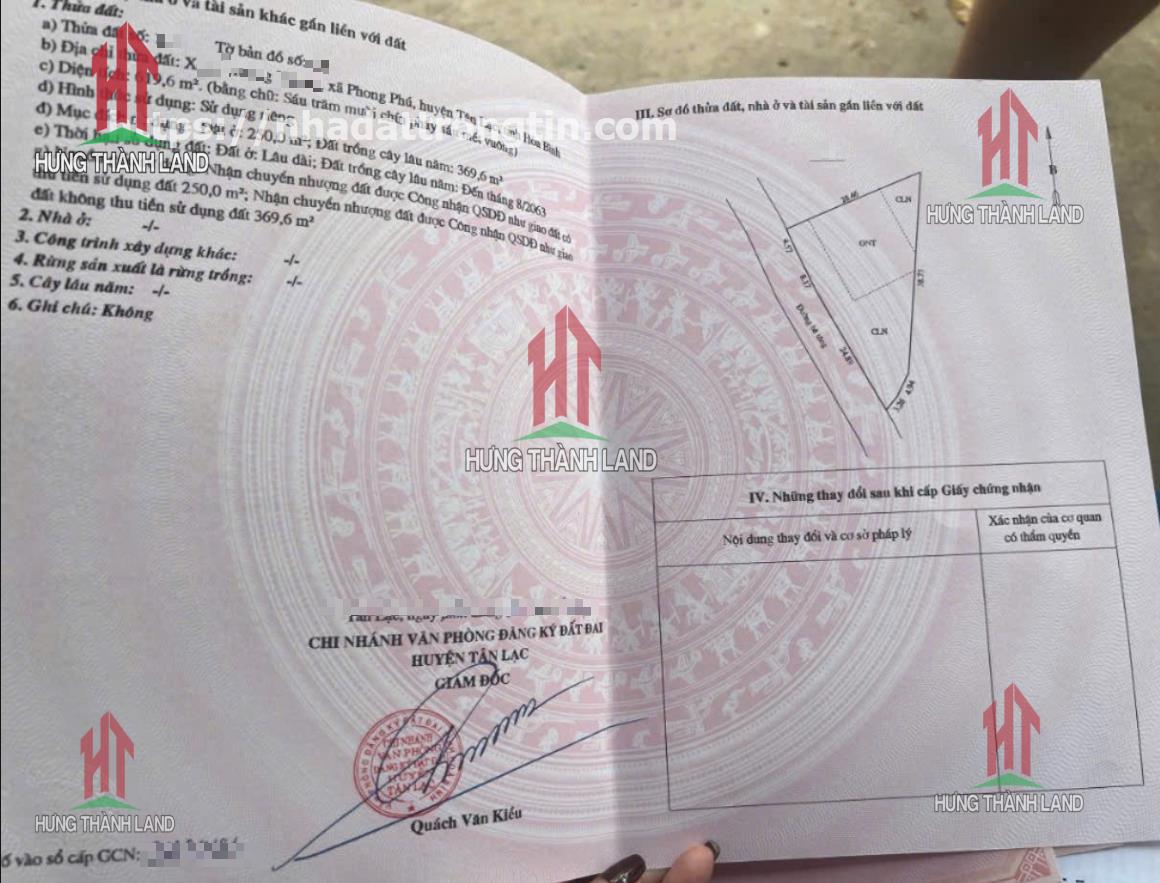 ở và tài sản khác gắn liền với đất
1. Thửa đất:
a) Thửa đất số:
Tờ bản đồ số:
b) Địa chỉ thửa đất: X
xã Phong Phú, huyện Tân Lạc, tỉnh Hòa Bình
c) Diện tích: 619,6 m². (bằng chữ: Sáu trăm mười chín phẩy sáu mét vuông)
d) Hình thức sử dụng: Sử dụng riêng
đ) Mục đích sử dụng: Đất ở: 250,0 m²; Đất trồng cây lâu năm: 369,6 m²
e) Thời hạn sử dụng đất: Đất ở: Lâu dài; Đất trồng cây lâu năm: Đến tháng 8/2063
Nhận chuyển nhượng đất được Công nhận QSDĐ như giao đất có
thu tiền sử dụng đất 250,0 m²; Nhận chuyển nhượng đất được Công nhận QSDĐ như giao
đất không thu tiền sử dụng đất 369,6 m²
2. Nhà ở: -/-
3. Công trình xây dựng khác: -/-
4. Rừng sản xuất là rừng trồng: -/-
5. Cây lâu năm: -/-
6. Ghi chú: Không
CHI NHÁNH VĂN PHÒNG ĐĂNG KÝ ĐẤT ĐAI
HUYỆN TÂN LẠC
GIÁM ĐỐC
CHI NHÁNH
VĂN PHÒNG
ĐĂNG KÝ ĐẤT ĐAI
HUYỆN
TÂN LẠC
Quách Văn Kiều
số vào sổ cấp GCN:
III. Sơ đồ thửa đất, nhà ở và tài sản gắn liền với đất
B
28.46
CLN
ONT
4.57
8.37
38.71
Đường bê tông
24.89
CLN
3.26
4.94
IV. Những thay đổi sau khi cấp Giấy chứng nhận
Nội dung thay đổi và cơ sở pháp lý
Xác nhận của cơ quan
có thẩm quyền
https://nhadathungtin.com
HƯNG THÀNH LAND
HƯNG THÀNH LAND
HƯNG THÀNH LAND
HƯNG THÀNH LAND
HƯNG THÀNH LAND